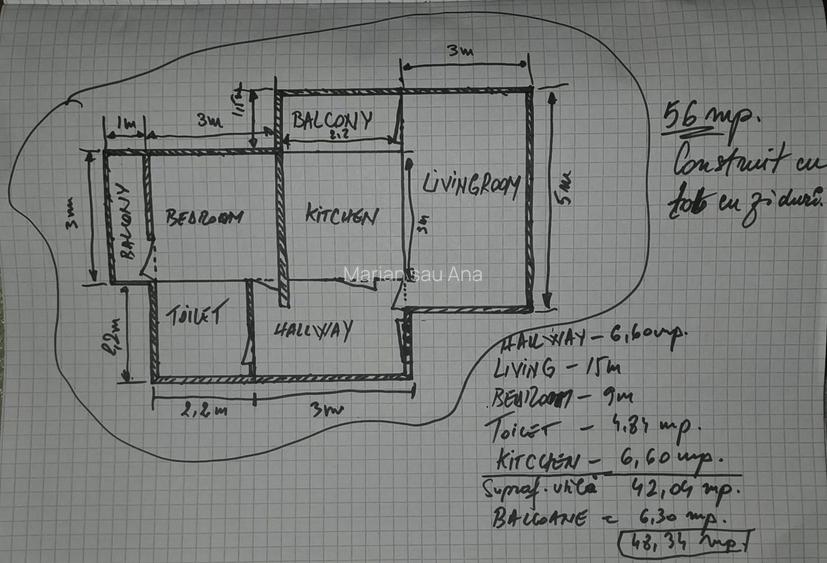 3m
1,5m
1m
3m
BALCONY
2,2
56 mp.
Construit cu
tot cu ziduri.
3m
BALCONY
BEDROOM
KITCHEN
3m
LIVINGROOM
5m
Marian sau Ana
2,2m
TOILET
HALLWAY
2,2m
3m
HALLWAY - 6,60mp.
LIVING - 15m
BEDROOM - 9m
TOILET - 4,84 mp.
KITCHEN - 6,60 mp.
Supraf. utilă 42,04 mp.
BALCOANE = 6,30 mp.
48,34 mp